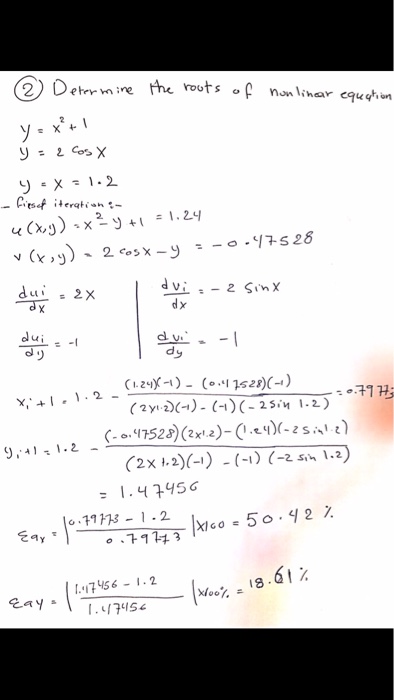 ② Determine the roots of nonlinear equation
y = x² + 1
y = 2 cos x
y = x = 1.2
- first iteration :-
u(x,y) = x² - y + 1 = 1.24
v(x,y) = 2 cosx - y = -0.47528
dui/dx = 2x | dvi/dx = -2 sinx
dui/dy = -1 | dvi/dy = -1
xi+1 = 1.2 - (1.24)(-1) - (0.47528)(-1) / (2x1.2)(-1) - (-1)(-2sin 1.2) = 0.79773
yi+1 = 1.2 - (-0.47528)(2x1.2) - (1.24)(-2sin1.2) / (2x1.2)(-1) - (-1)(-2 sin 1.2)
= 1.47456
εax = |0.79773 - 1.2 / 0.79773| x100 = 50.42 %
εay = |1.47456 - 1.2 / 1.47456| x100% = 18.61%